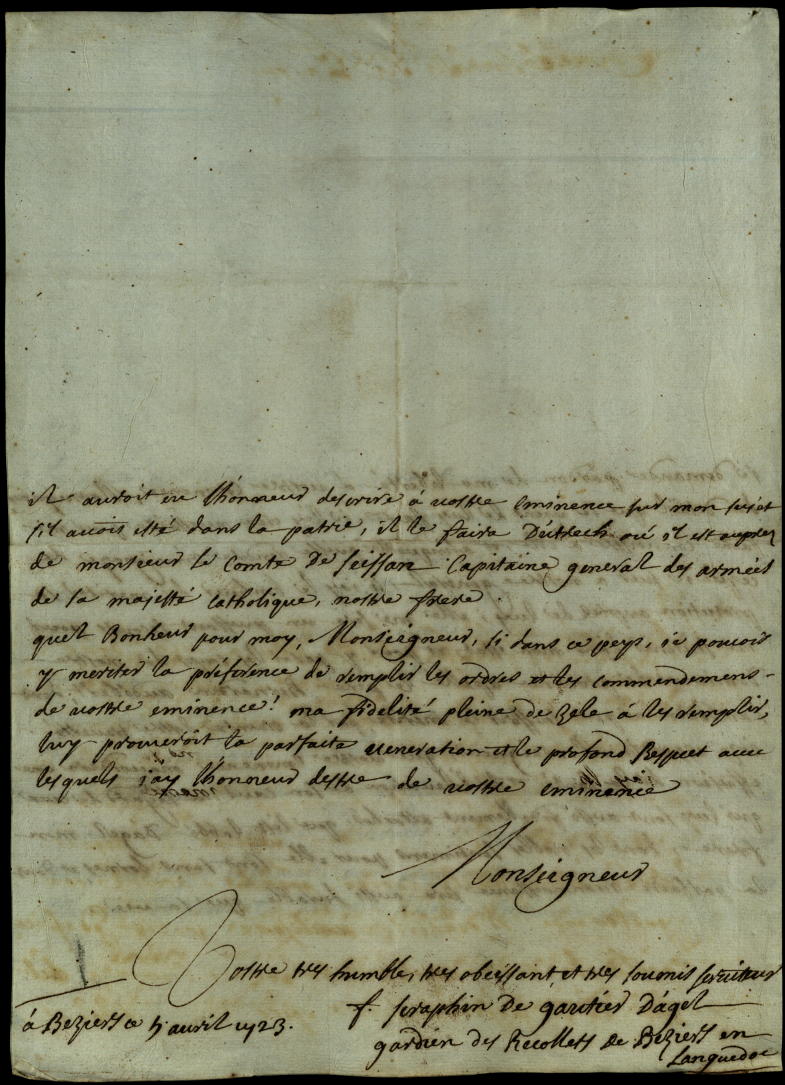 il auroit eu lhonneur descrire á vostre eminence sur mon sujet
sil avoit esté dans la patrie, il le faira Dútrech oú il est auprez
de monsieur le Comte de Seissan Capitaine general des armées
de sa majesté catholique, nostre frere.
quel Bonheur pour moy, Monseigneur, si dans ce peys, ie pouvois
y meriter la préference de remplir les ordres et les commendemens
de vostre eminence! ma fidelité pleine de zele á les remplir,
luy prouveroit la parfaite veneration et le profond Respect avec
lesquels j'ay lhonneur destre de vostre eminence
Monseigneur
Vostre tres humble, tres obeissant, et tres soumis serviteur
f. seraphin de gautier Dágel
á Beziers ce 5 avril 1723.
gardien des Recollets de Béziers en
Languedoc